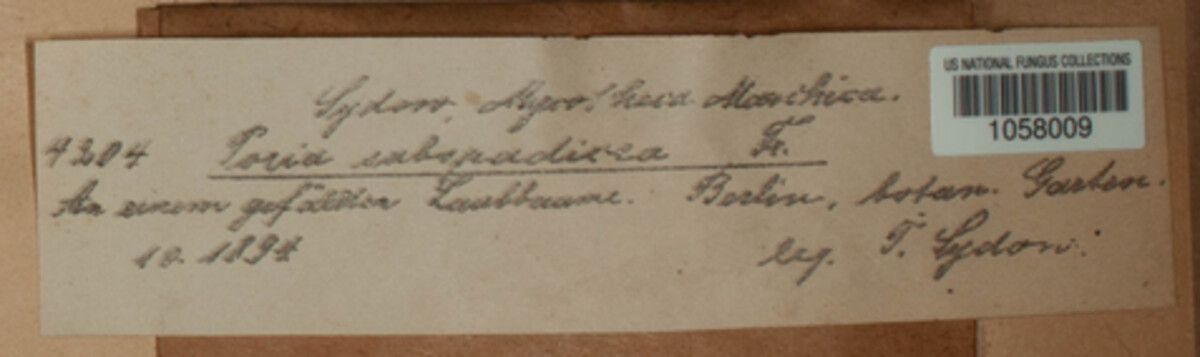 Sydow, Mycotheca Marchica.
4204 Poria subspadicea Fr.
An einem gefällten Laubbaume. Berlin, botan. Garten.
10. 1894 leg. P. Sydow.
US NATIONAL FUNGUS COLLECTIONS
1058009